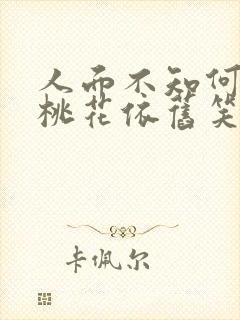 人而不知何
桃花依舊笑
卡佩尔